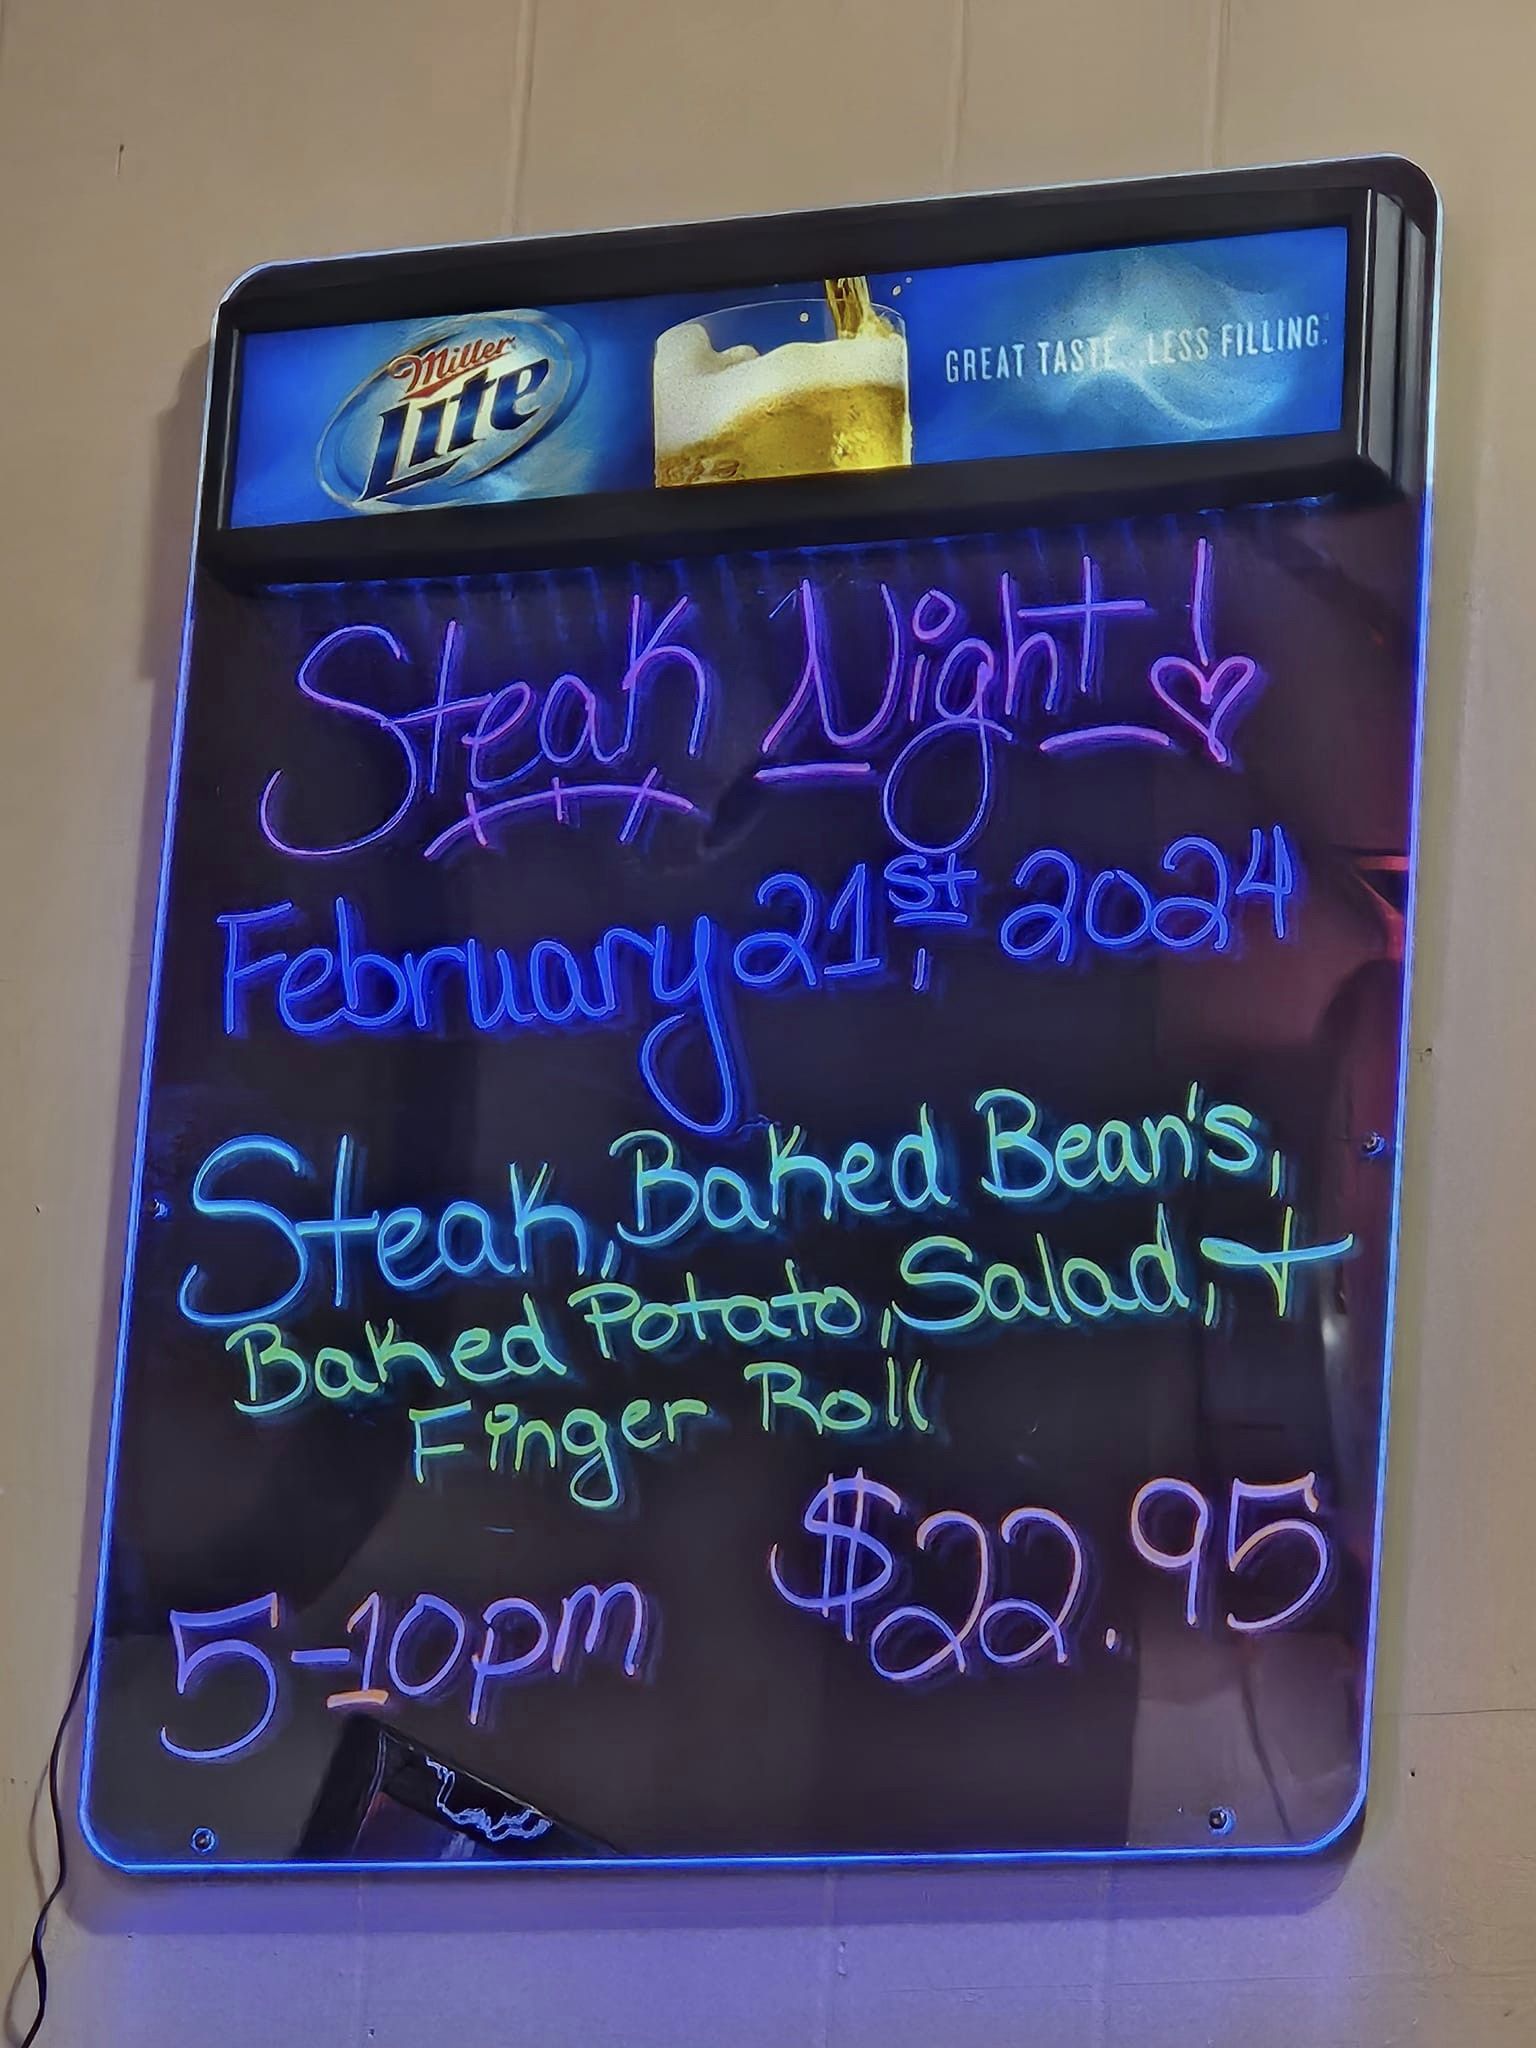 Miller
Lite
GREAT TASTE...LESS FILLING.
Steak Night!
February 21st, 2024
Steak, Baked Bean's,
Baked Potato, Salad, +
Finger Roll
$22.95
5-10pm